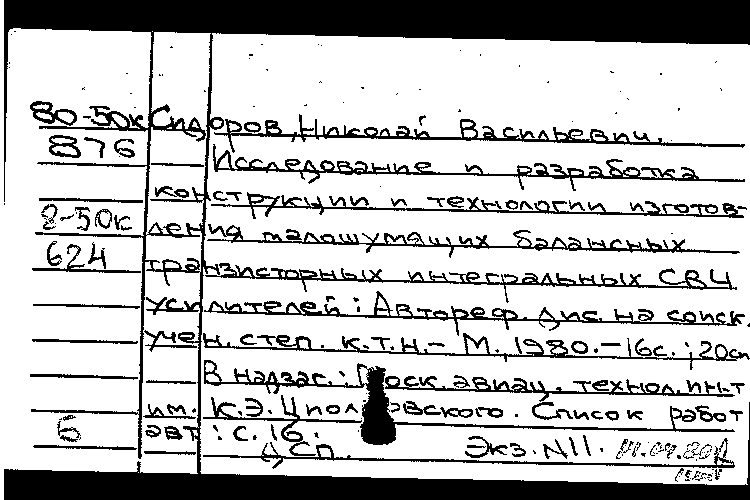 80-50к Сидоров, Николай Васильевич.
876 Исследование и разработка
конструкции и технологии изготов-
8-50к ления малошумящих балансных
624 транзисторных интегральных СВЧ
усилителей: Автореф. дис. на соиск.
учен. степ. к.т.н.- М., 1980.-16с.; 20см
В надзаг.: Моск. авиац. технол. ин-т
им. К.Э. Циолковского. Список работ
Б авт: с. 16.
Сп. Экз. N11.